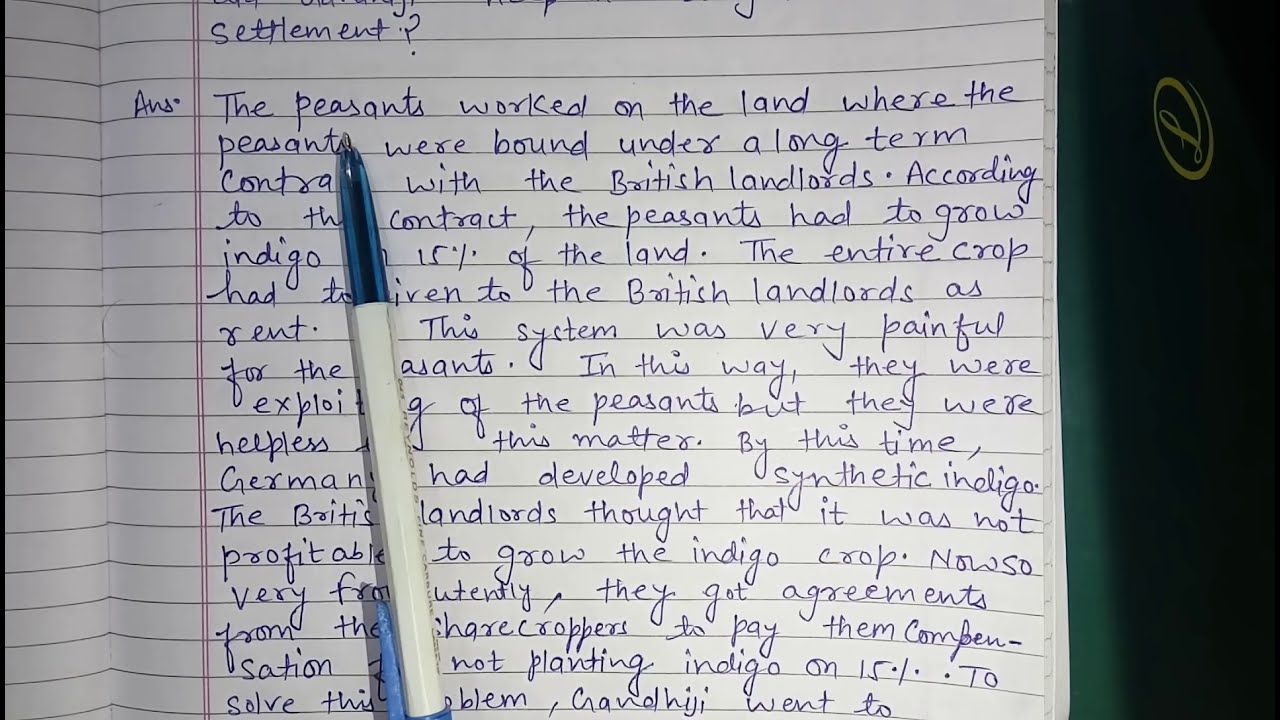 settlement?
Ans. The peasants worked on the land where the
peasants were bound under a long term
contra with the British landlords. According
to the contract, the peasants had to grow
indigo 15% of the land. The entire crop
had to iven to the British landlords as
rent. This system was very painful
for the asants. In this way, they were
exploit g of the peasants but they were
helpless this matter. By this time,
German had developed synthetic indigo.
The Britis landlords thought that it was not
profitable to grow the indigo crop. Now so
very utently, they got agreements
from the sharecroppers to pay them compen-
sation not planting indigo on 15%. To
solve this oblem, Gandhiji went to